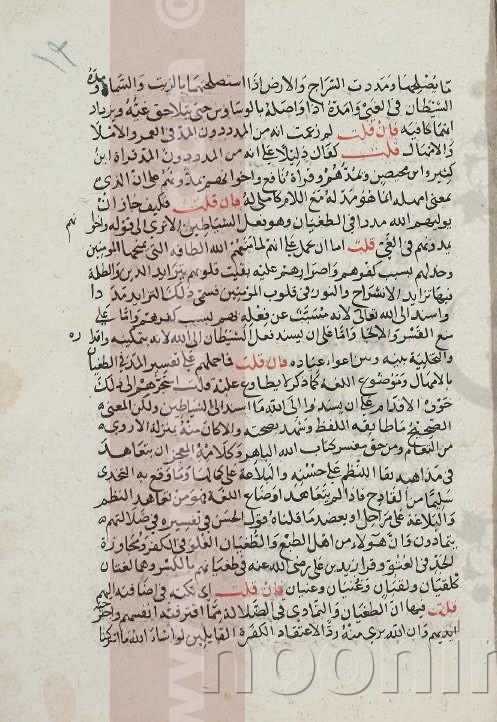 ١٢
مما يصلحها ومددت السراج والارض اذا استصلحتهما بالزيت والسماد ومده
الشيطان في الغي وامده اذا واصله بالوساوس حتى يتلاحق غيه ويزداد
انهماكا فيه فان قلت لم زعمت انه من المدد دون المد في العمر والاملا
والامهال قلت كفاك دليلا على انه من المدد دون المد قراءة ابن
كثير وابن محيصن ويمدهم وقراءة نافع واخوانهم يمدونهم على ان الذي
بمعنى امهله انما هو مد له مع اللام كاملى له فان قلت فكيف جاز ان
يوليهم الله مددا في الطغيان وهو فعل الشياطين الا ترى الى قوله واخوانهم
يمدونهم في الغي قلت اما ان يحمل على انهم لما منعهم الله الطافه التي يمنحها المومنين
وخذلهم بسبب كفرهم واصرارهم عليه بقيت قلوبهم يتزايد الرين والظلمة
فيها تزايد الانشراح والنور في قلوب المومنين فسمى ذلك التزايد مددا
واسند الى الله تعالى لانه مسبب عن فعله بهم بسبب كفرهم واما على
منع القسر والالجا واما على ان يسند فعل الشيطان الى الله لانه بتمكينه واقداره
والتخلية بينه وبين اغواء عباده فان قلت فما حملهم على تفسير المد في الطغيان
بالامهال وموضوع اللغة كما ذكرت لا يطاوع عليه قلت استجرهم الى ذلك
خوف الاقدام على ان يسندوا الى الله ما اسند الى الشياطين ولكن المعنى
الصحيح ما طابقه اللفظ وشهد بصحته والا كان منه بمنزلة الاروى
من النعام ومن حق مفسر كتاب الله الباهر وكلامه المعجز ان يتعاهد
في مذاهبه بقا النظم على حسنه والبلاغة على كمالها وما وقع به التحدي
سليما من القادح فاذا لم يتعاهد اوضاع اللغة فهو من تعاهد النظم
والبلاغة على مراحل ويعضد ما قلناه قول الحسن في تفسيره في ضلالتهم
يتمادون وان هولاء من اهل الطبع والطغيان الغلو في الكفر ومجاوزة
الحد في العتو وقرا زيد بن علي رضي الله عنه في طغيانهم بالكسر وهما لغتان
كلقيان ولقيان وغنيان وغنيان فان قلت اي نكته في اضافته اليهم
قلت فيها ان الطغيان والتمادي في الضلالة مما اقترفته انفسهم واجترحته
ايديهم وان الله بري منه ردا لاعتقاد الكفرة القايلين لو شاء الله ما اشركنا
noorlib